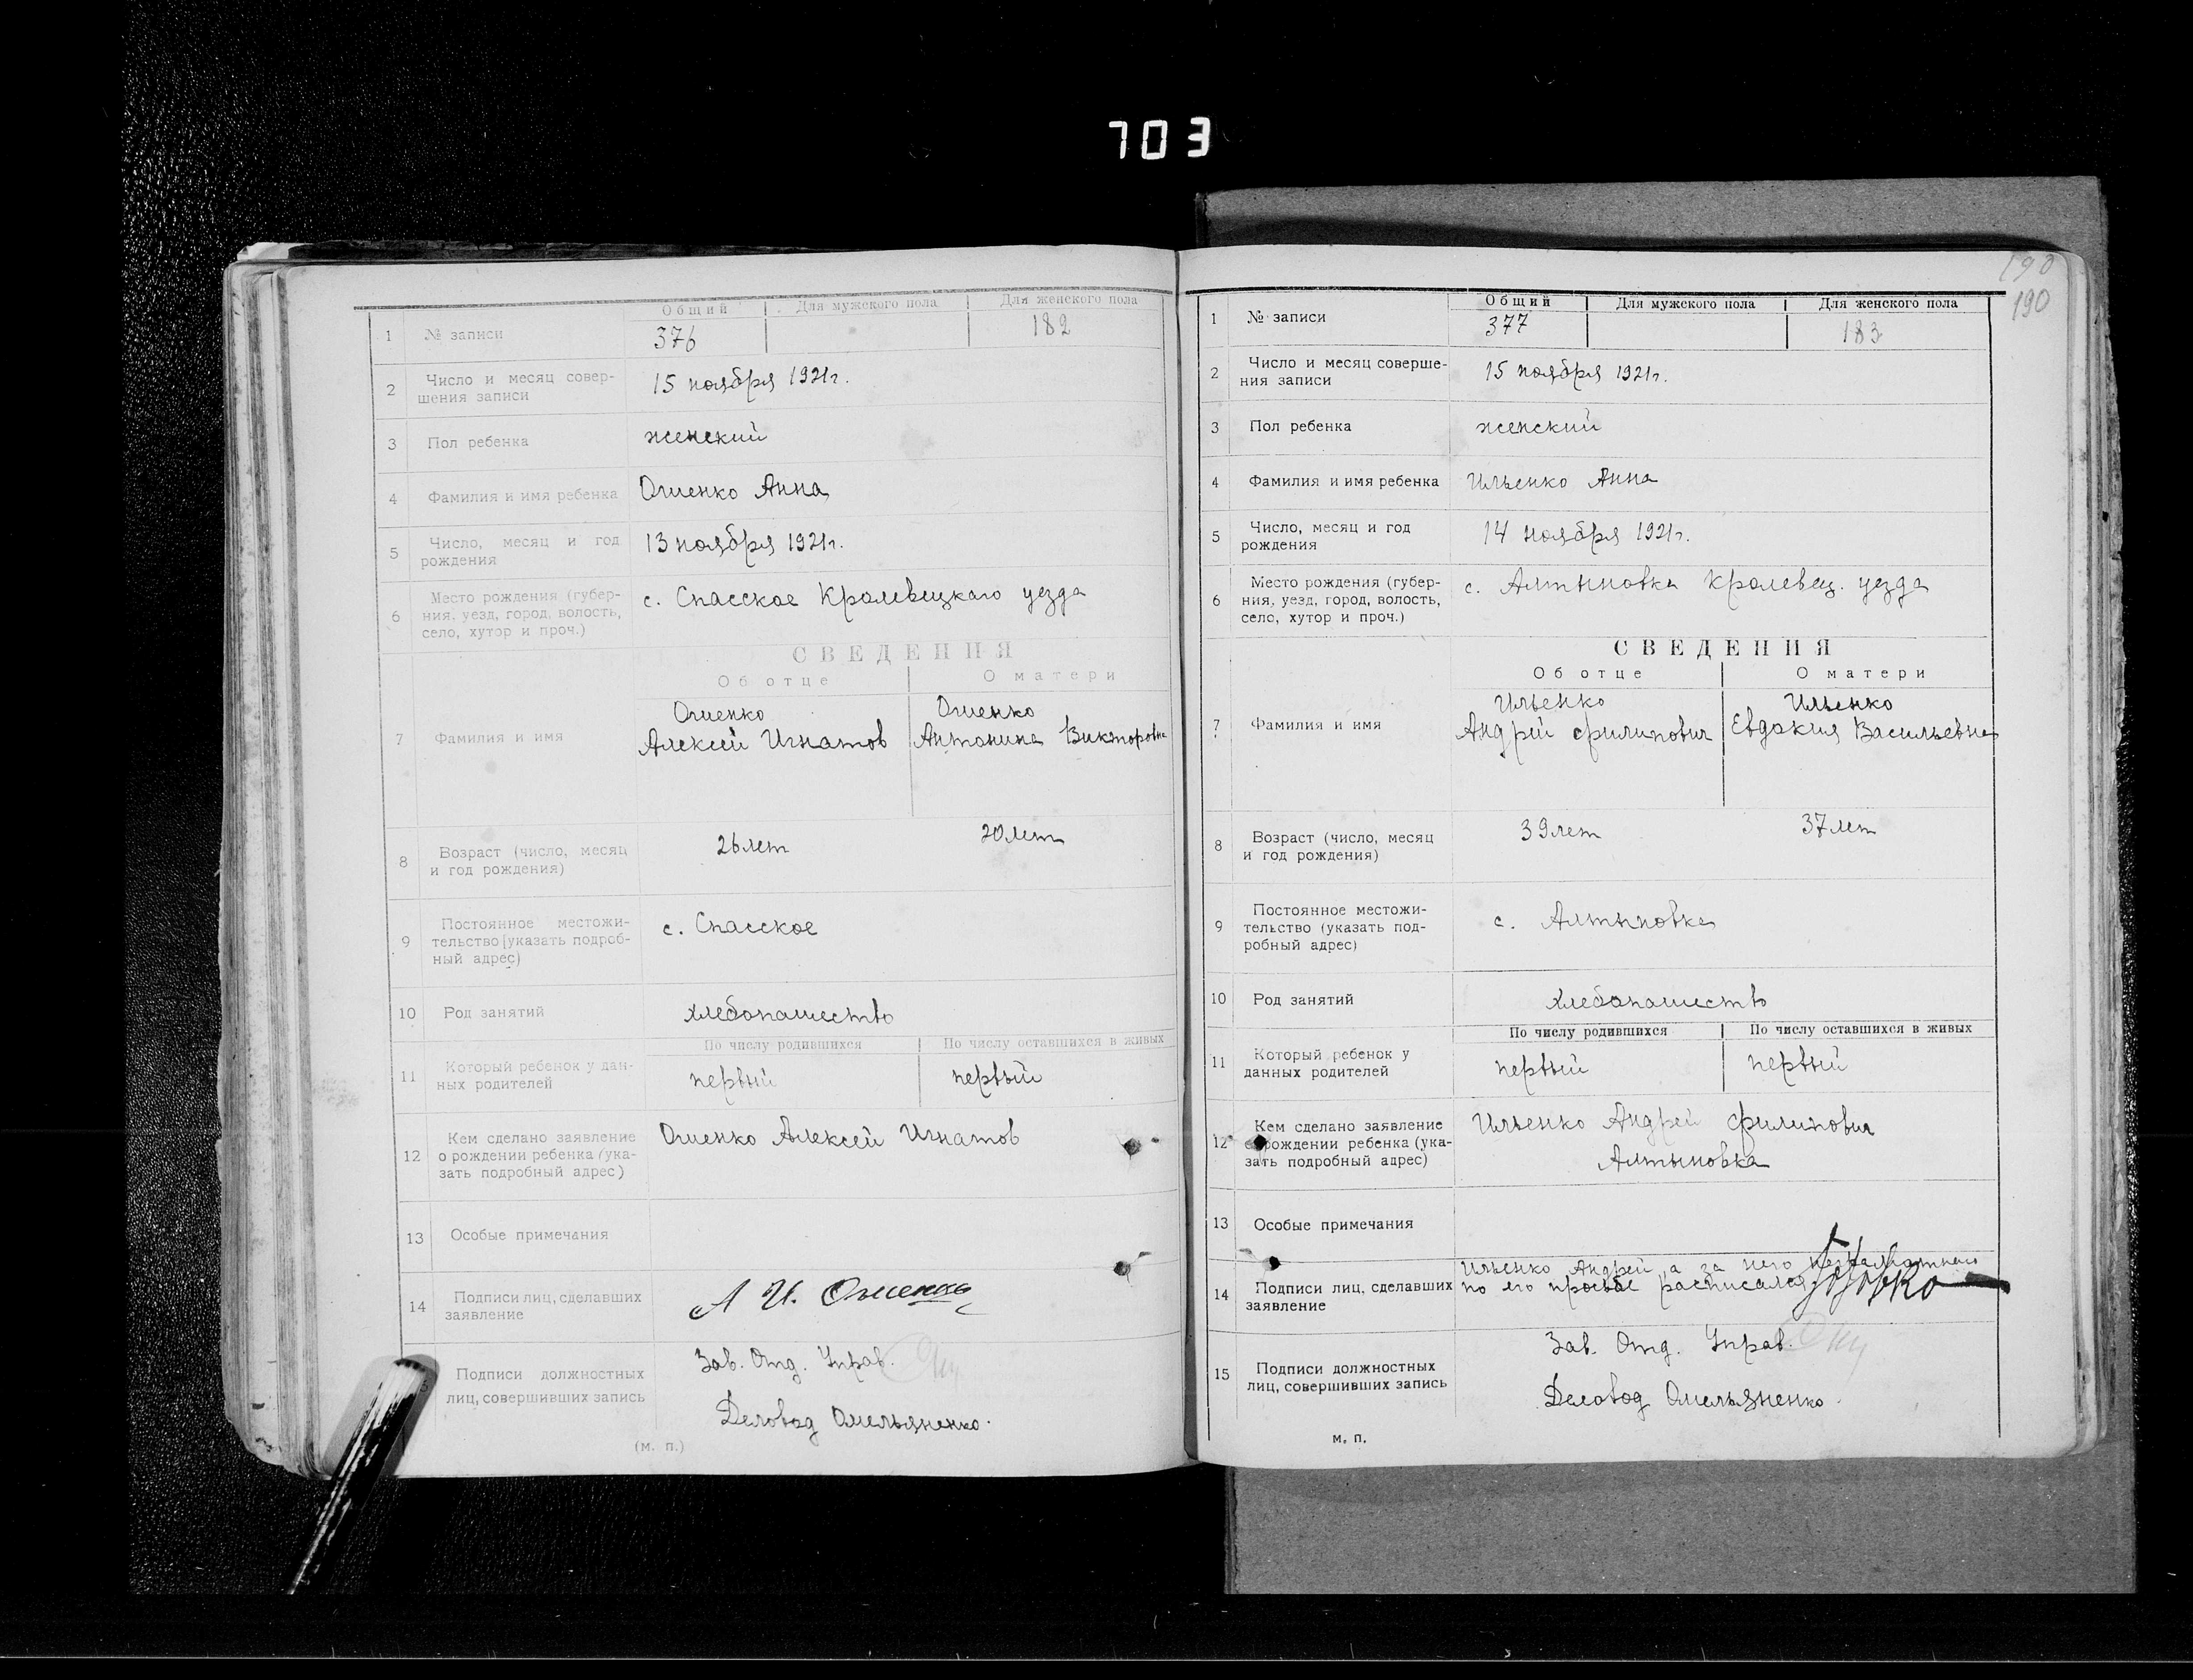 703
Общий
Для мужского пола
Для женского пола
1
№ записи
376
182
2
Число и месяц совер-
шения записи
15 ноября 1921г.
3
Пол ребенка
женский
4
Фамилия и имя ребенка
Ошенко Анна
5
Число, месяц и год
рождения
13 ноября 1921г.
6
Место рождения (губер-
ния, уезд, город, волость,
село, хутор и проч.)
с. Спасское Кролевецкаго уезда
СВЕДЕНИЯ
Об отце
О матери
7
Фамилия и имя
Ошенко
Алексей Игнатов
Ошенко
Антонина Викторовна
8
Возраст (число, месяц
и год рождения)
26 лет
20 лет
9
Постоянное местожи-
тельство [указать подроб-
ный адрес)
с. Спасское
10
Род занятий
хлебопашество
11
Который ребенок у дан-
ных родителей
По числу родившихся
По числу оставшихся в живых
первый
первый
12
Кем сделано заявление
о рождении ребенка (ука-
зать подробный адрес)
Ошенко Алексей Игнатов
13
Особые примечания
14
Подписи лиц, сделавших
заявление
А И. Ошенко
Подписи должностных
лиц, совершивших запись
Зав. Отд. Управ.
Деловод Омельяненко.
(м. п.)
190
190
Общий
Для мужского пола
Для женского пола
1
№ записи
377
183
2
Число и месяц соверше-
ния записи
15 ноября 1921г.
3
Пол ребенка
женский
4
Фамилия и имя ребенка
Ильенко Анна
5
Число, месяц и год
рождения
14 ноября 1921г.
6
Место рождения (губер-
ния, уезд, город, волость,
село, хутор и проч.)
с. Алтыновка Кролевец. уезда
СВЕДЕНИЯ
Об отце
О матери
7
Фамилия и имя
Ильенко
Андрій Филипович
Ильенко
Евдокия Васильевна
8
Возраст (число, месяц
и год рождения)
39 лет
37 лет
9
Постоянное местожи-
тельство (указать под-
робный адрес)
с. Алтыновка
10
Род занятий
хлебопашество
11
Который ребенок у
данных родителей
По числу родившихся
По числу оставшихся в живых
первый
первый
12
Кем сделано заявление
о рождении ребенка (ука-
зать подробный адрес)
Ильенко Андрей Филипович
Алтыновка
13
Особые примечания
14
Подписи лиц, сделавших
заявление
Ильенко Андрей а за него неграмотнаго
по его просьбе расписался
15
Подписи должностных
лиц, совершивших запись
Зав. Отд. Управ.
Деловод Омельяненко.
м. п.